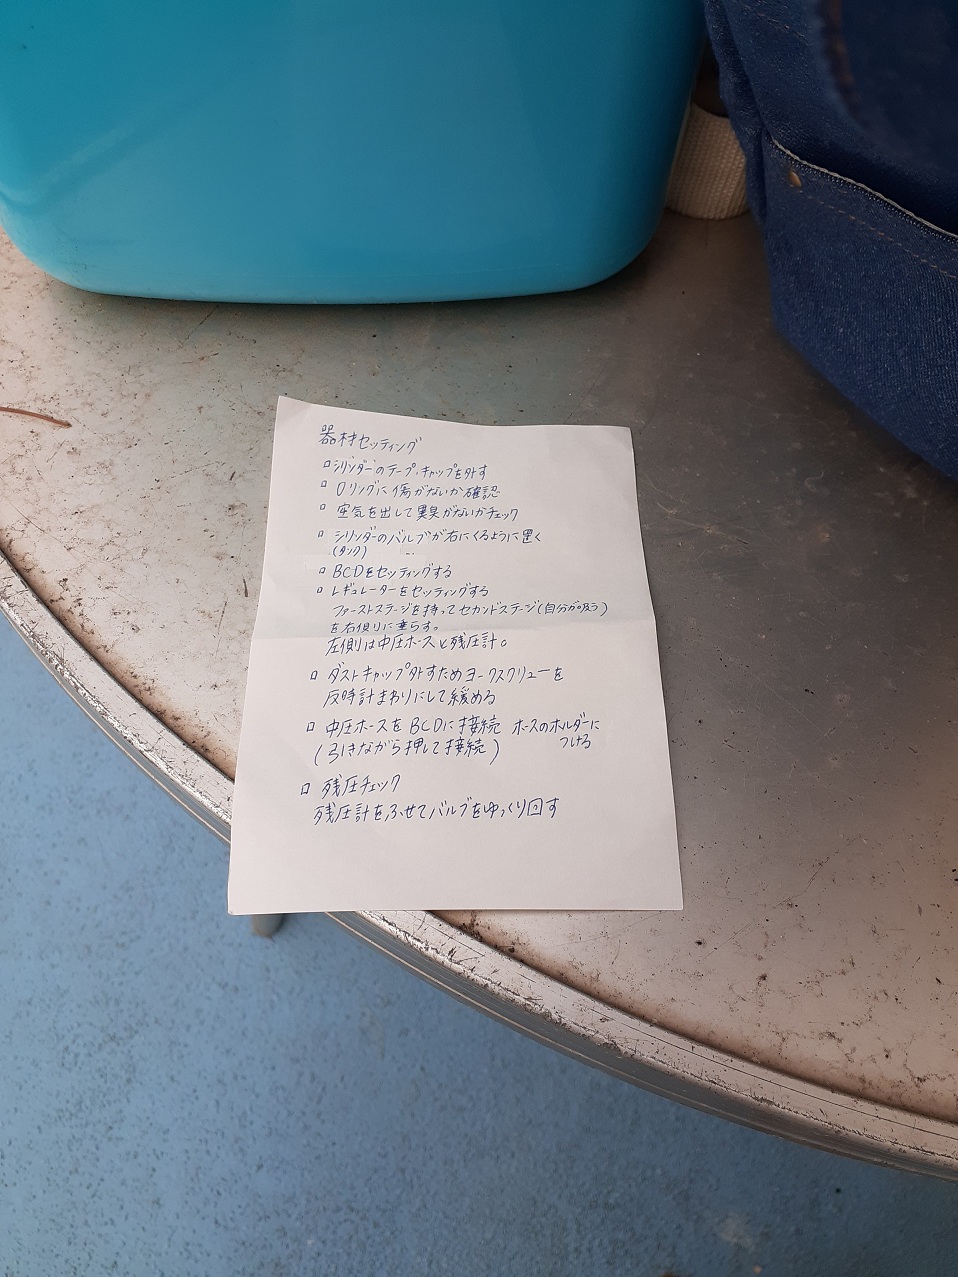 器材セッティング
□シリンダーのテープ・キャップを外す
□Oリングに傷がないか確認
□空気を出して異臭がないかチェック
□シリンダーのバルブが右にくるように置く
(タンク)
□BCDをセッティングする
□レギュレーターをセッティングする
ファーストステージを持ってセカンドステージ(自分が吸う)
を右側りに垂らす。
左側は中圧ホースと残圧計。
□ダストキャップ外すためヨークスクリューを
反時計まわりにして緩める
□中圧ホースをBCDに接続 ホースのホルダーに
つける
(引きながら押して接続)
□残圧チェック
残圧計をふせてバルブをゆっくり回す